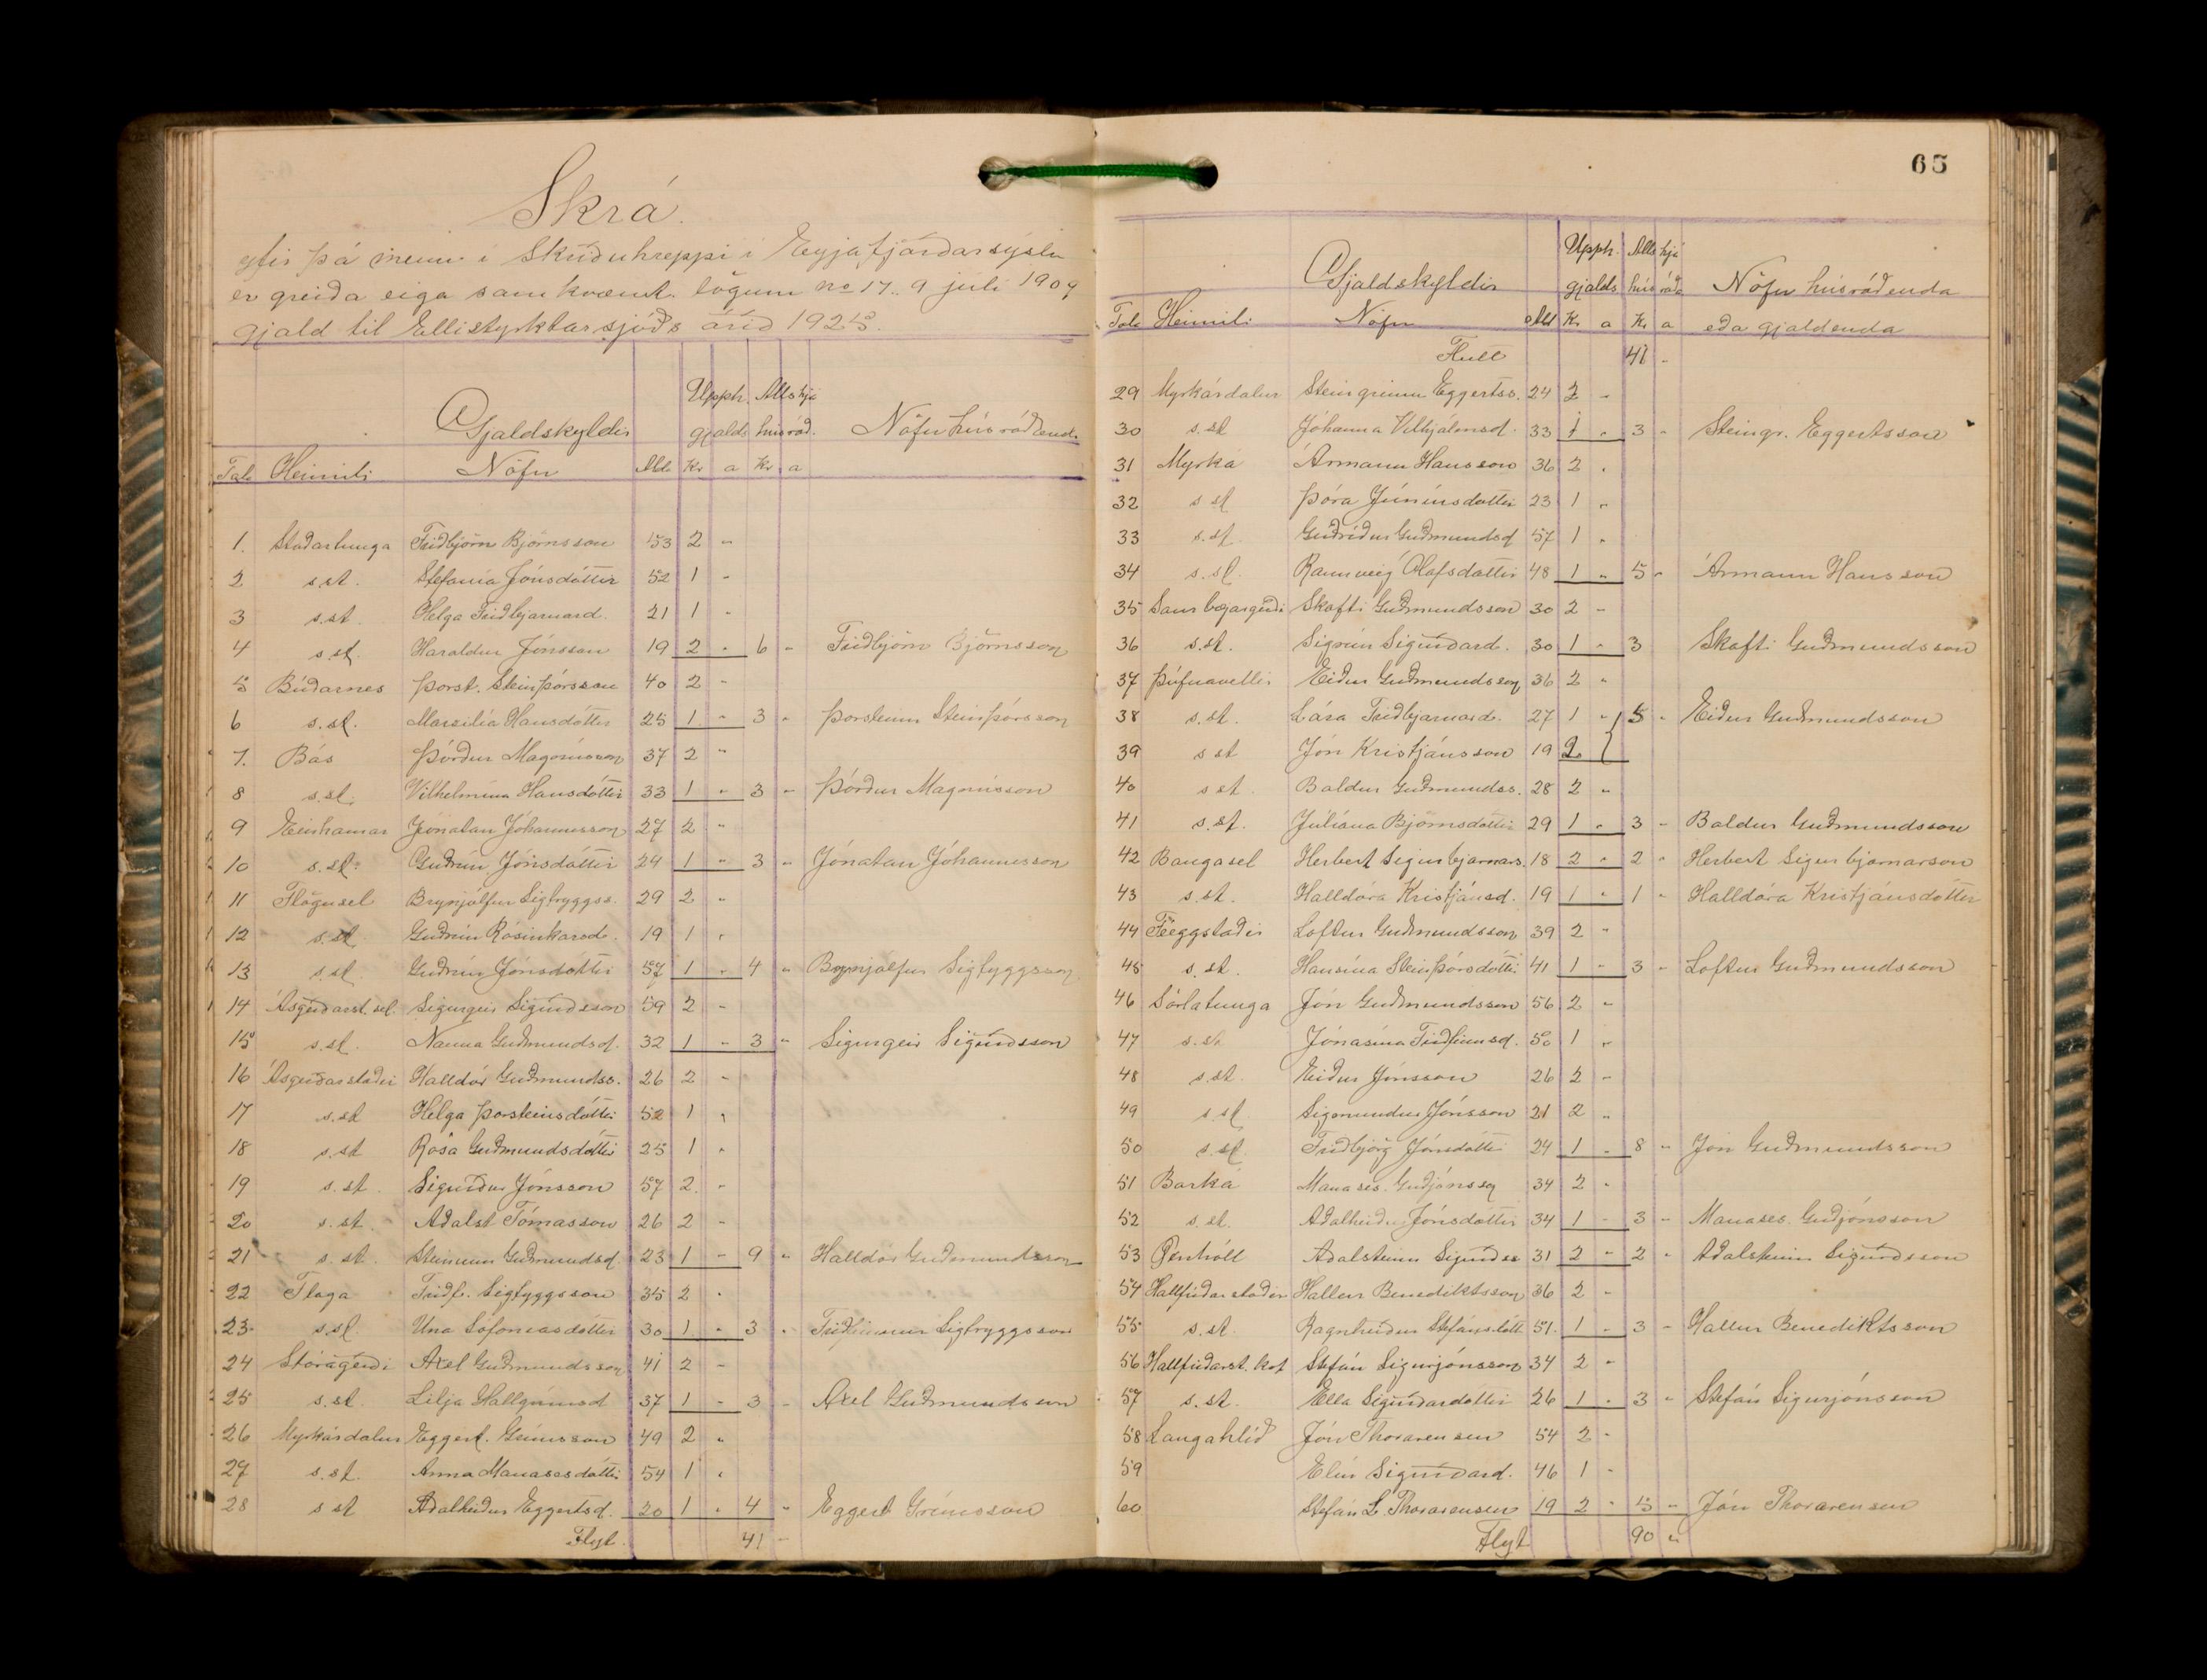 Skrá.
yfir þá menn í Skriðuhreppi í Eyjafjarðarsýslu
er greiða eiga samkvæmt. lögum no 17. 9 júlí 1909
gjald til Ellistyrktarsjóðs árið 1925.
Gjaldskyldir Upph. gjalds Alls hjá húsráð. Nöfn húsráðend.
Tala Heimili Nöfn Ald. Kr a Kr a
1. Staðartunga Friðbjörn Björnsson 53 2 "
2 s.st. Stefanía Jónsdóttir 52 1 "
3 s.st. Helga Friðbjarnard. 21 1 "
4 s.st. Haraldur Jónsson 19 2 " 6 " Friðbjörn Björnsson
5 Búðarnes Þorst. Steinþórsson 40 2 "
6 s.st. Marsilía Hansdóttir 25 1 " 3 " Þorsteinn Steinþórsson
7. Bás Þórður Magnússon 37 2 "
8 s.st. Vilhelmína Hansdóttir 33 1 " 3 " Þórður Magnússon
9 Einhamar Jónatan Jóhannesson 27 2 "
10 s.st. Guðrún Jónsdóttir 24 1 " 3 " Jónatan Jóhannesson
11 Flögusel Brynjólfur Sigtryggss. 29 2 "
12 s.st. Guðrún Rósinkarsd. 19 1 "
13 s.st. Guðrún Jónsdóttir 57 1 " 4 " Brynjólfur Sigtyggsson
14 Ásgerðarst. sel. Sigurgeir Sigurðsson 59 2 "
15 s.st. Nanna Guðmundsd. 32 1 " 3 " Sigurgeir Sigurðsson
16 Ásgerðarstaðir Halldór Guðmundss. 26 2 "
17 s.st Helga Þorsteinsdóttir 52 1 "
18 s.st Rósa Guðmundsdóttir 25 1 "
19 s.st. Sigurður Jónsson 57 2 "
20 s.st. Aðalst Tómasson 26 2 "
21 s.st. Steinunn Guðmundsd. 23 1 " 9 " Halldór Guðmundsson
22 Flaga Friðf. Sigtyggsson 35 2 "
23 s.st. Una Sófoníasdóttir 30 1 " 3 " Friðfinnur Sigtryggsson
24 Stóragerði Axel Guðmundsson 41 2 "
25 s.st. Lilja Hallgrímsd 37 1 " 3 " Axel Guðmundsson
26 Myrkárdalur Eggert. Grímsson 49 2 "
27 s.st. Anna Manasesdóttir 54 1 "
28 s st Aðalheiður Eggertsd. 20 1 " 4 " Eggert Grímsson
Flyt. 41 "
65
Gjaldskyldir Upph. gjalds Alls hjá húsráða Nöfn húsráðenda
Tala Heimili Nöfn Ald Kr a Kr a eða gjaldenda
Flutt 41 "
29 Myrkárdalur Steingrímur Eggertss. 24 2 "
30 s.st Jóhanna Vilhjálmsd. 33 1 " 3 " Steingr. Eggertsson
31 Myrká Ármann Hansson 36 2 "
32 s st Þóra Júníusdóttir 23 1 "
33 s.st. Guðríður Guðmundsd 57 1 "
34 s.st. Rannveig Ólafsdóttir 48 1 " 5 " Ármann Hansson
35 Saurbæjargerði Skafti Guðmundsson 30 2 "
36 s.st. Sigrún Sigurðard. 30 1 " 3 Skafti Guðmundsson
37 Þúfnavellir Eiður Guðmundsson 36 2 "
38 s.st. Lára Friðbjarnard. 27 1 " 5 " Eiður Guðmundsson
39 s st Jón Kristjánsson 19 2
40 s st. Baldur Guðmundss. 28 2 "
41 s.st. Júlíana Björnsdóttir 29 1 " 3 " Baldur Guðmundsson
42 Baugasel Herbert Sigurbjarnars. 18 2 " 2 " Herbert Sigurbjarnarson
43 s.st. Halldóra Kristjánsd. 19 1 " 1 " Halldóra Kristjánsdóttir
44 Féeggstaðir Loftur Guðmundsson 39 2 "
45 s.st. Hansína Steinþórsdóttir 41 1 " 3 " Loftur Guðmundsson
46 Sörlatunga Jón Guðmundsson 56 2 "
47 s.st Jónasína Friðfinnsd. 50 1 "
48 s.st. Eiður Jónsson 26 2 "
49 s.st. Sigmundur Jónsson 21 2 "
50 s.st. Friðbjörg Jónsdóttir 24 1 " 8 " Jón Guðmundsson
51 Barká Manases. Guðjónsson 34 2 "
52 s.st. Aðalheiður Jónsdóttir 34 1 " 3 " Manases. Guðjónsson
53 Öxnhóll Aðalsteinn Sigurðss 31 2 " 2 " Aðalsteinn Sigurðsson
54 Hallfríðarstaðir Hallur Benediktsson 36 2 "
55 s.st. Ragnheiður Stefánsdótt 51. 1 " 3 " Hallur Benediktsson
56 Hallfríðarst. kot Stefán Sigurjónsson 34 2 "
57 s.st. Ella Sigurðardóttir 26 1 " 3 " Stefán Sigurjónsson
58 Langahlíð Jón Thorarensen 54 2 "
59 Elín Sigurðard. 46 1 "
60 Stefán L. Thorarensen 19 2 " 5 " Jón Thorarensen
Flyt 90 "